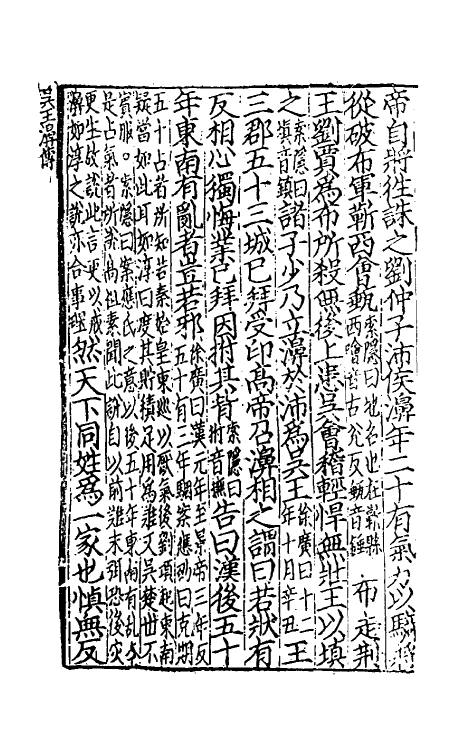 帝自將往誅之劉仲子沛侯濞年二十有氣力以騎將
從破布軍蘄西會甀
索隱曰地名也在蘄縣
西會音古兌反甀音錘
布走荆
王劉賈為布所殺無後上患吳會稽輕悍無壯王以填
之
索隱曰
填音鎮
諸子少乃立濞於沛為吳王
徐廣曰十二
年十月辛丑
王
三郡五十三城已拜受印高帝召濞相之謂曰若狀有
反相心獨悔業已拜因拊其背
索隱曰
拊音撫
告曰漢後五十
年東南有亂者豈若邪
徐廣曰漢元年至景帝三年反
五十有三年駰案應劭曰克期
五十占者所知若秦始皇東巡以厭氣後劉項起東南
疑當如此耳如淳曰度其貯積足用為難又吳楚世不
賓服。索隱曰案應氏之意以後五十年東南有亂本
是占氣者所說高祖素聞此說自以前難未弭恐後灾
更生故說此言更以戒
濞如淳之說亦合事理
然天下同姓為一家也慎無反
吳王濞傳